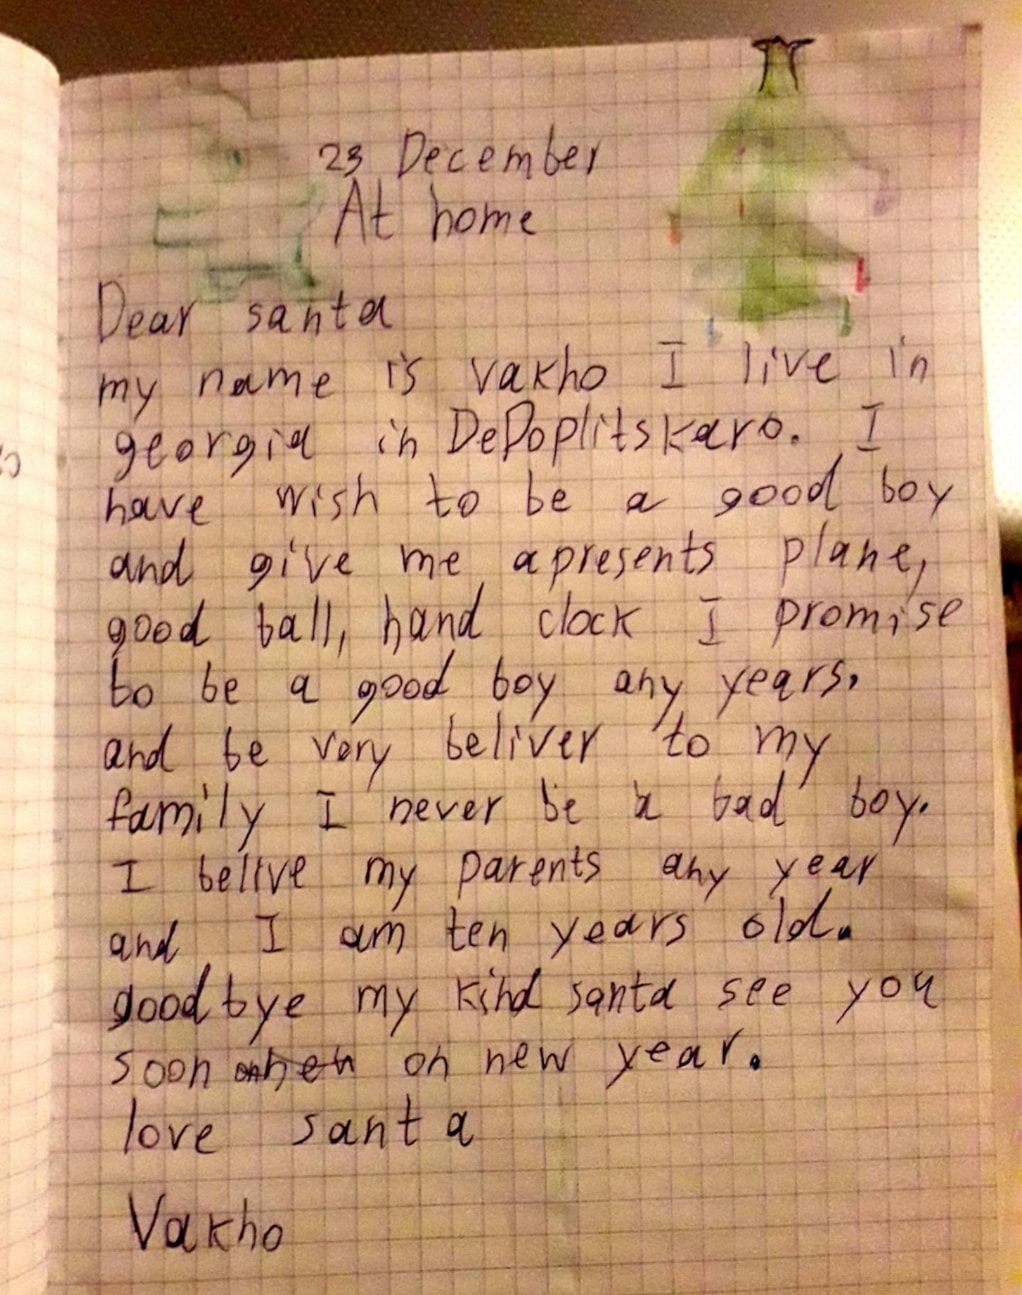 23 December
At home
Dear santa
my name is vakho I live in
georgia in DeDoplitskaro. I
have wish to be a good boy
and give me apresents plane,
good ball, hand clock I promise
to be a good boy any years.
and be very beliver to my
family I never be a bad boy.
I belive my parents any year
and I am ten years old.
goodbye my kind santa see you
soon on new year.
love santa
Vakho